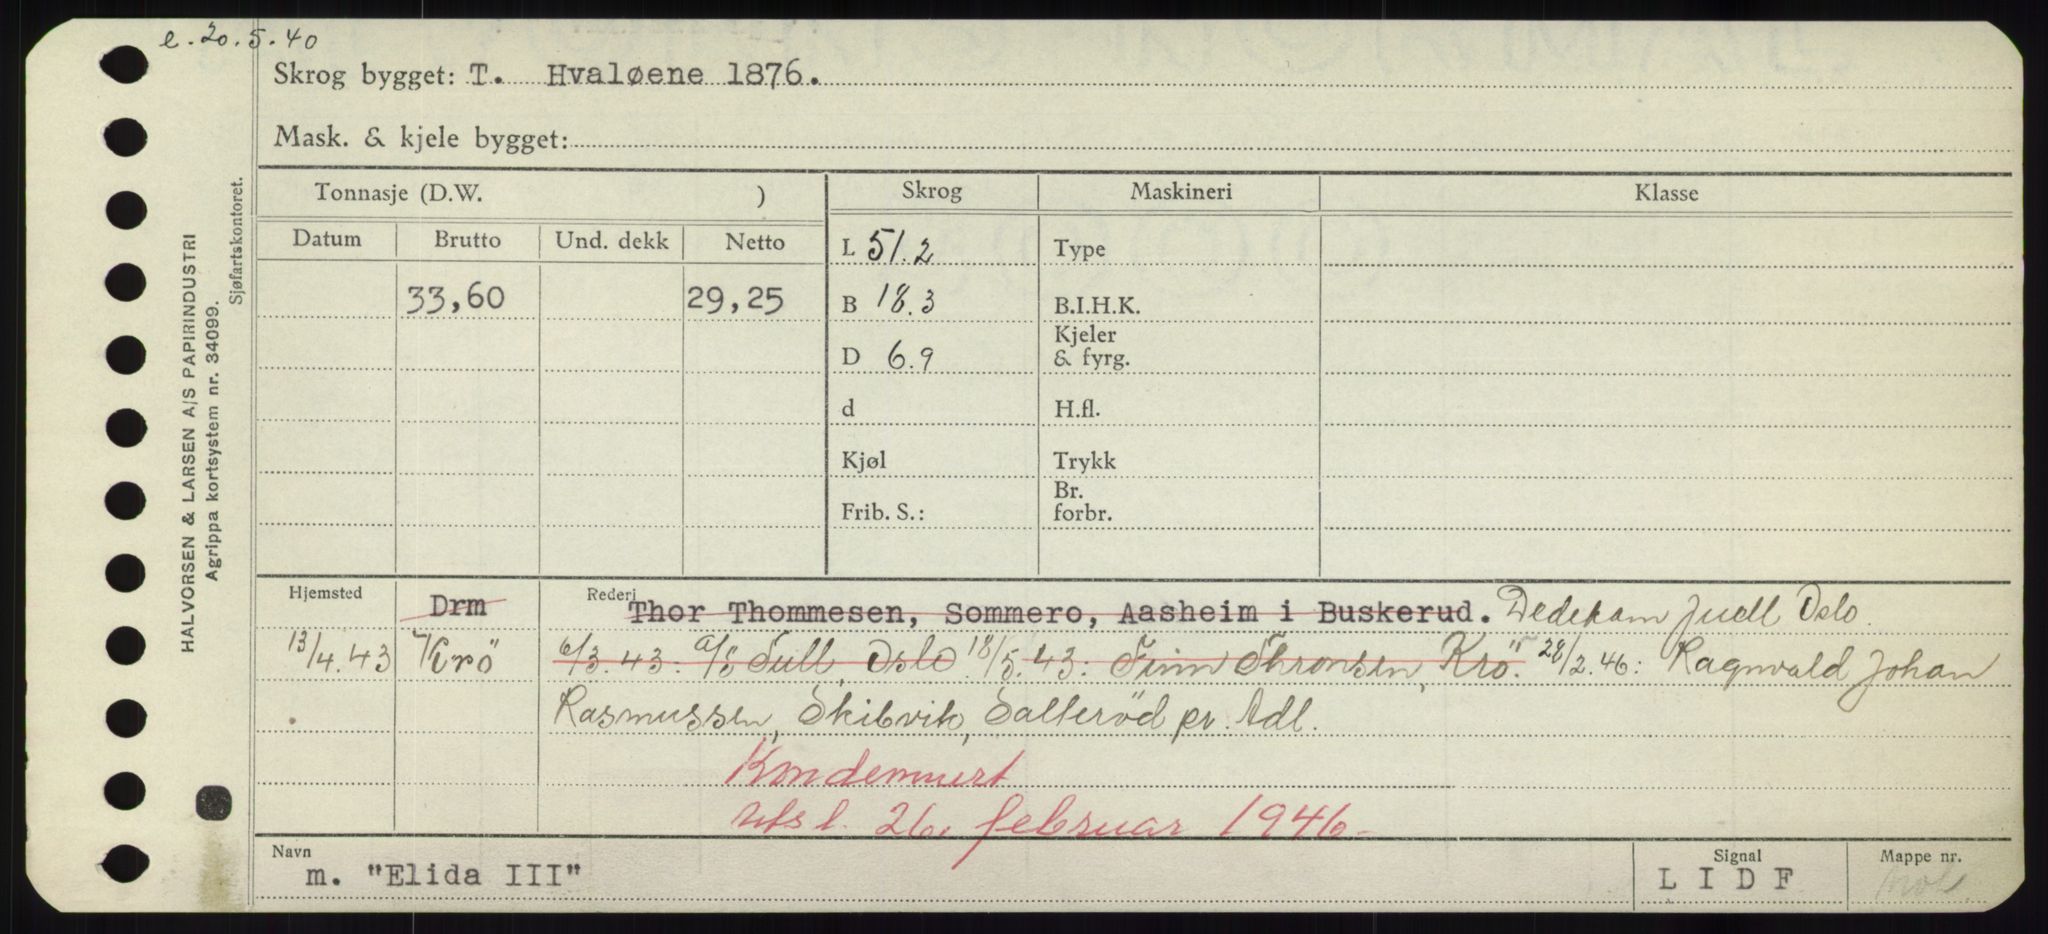 e. 20.5.40
Skrog bygget: T. Hvaløene 1876.
Mask. & kjele bygget:
HALVORSEN & LARSEN A/S PAPIRINDUSTRI
Agrippa kortsystem nr. 34099.
Sjøfartskontoret.
Tonnasje (D.W. ) Skrog Maskineri Klasse
Datum Brutto Und. dekk Netto L 51.2 Type
33,60 29,25 B 18.3 B.I.H.K.
D 6.9 Kjeler & fyrg.
d H.fl.
Kjøl Trykk
Frib. S.: Br. forbr.
Hjemsted Drm Rederi Thor Thommesen, Sommero, Aasheim i Buskerud. Dedekam Juell Oslo.
13/4.43 Krö 6/3.43: A/S Sull, Oslo 18/5.43: Finn Thronsen, Krö. 28/2.46: Ragnvald Johan
Rasmussen, Skibvik, Salteröd pr. Adl.
Kondemnert
utsl. 26. februar 1946.
Navn m. "Elida III" Signal L I D F Mappe nr.